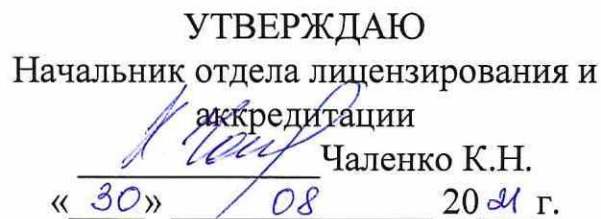 УТВЕРЖДАЮ
Начальник отдела лицензирования и
аккредитации
Чаленко К.Н.
« 30 » 08 2021 г.